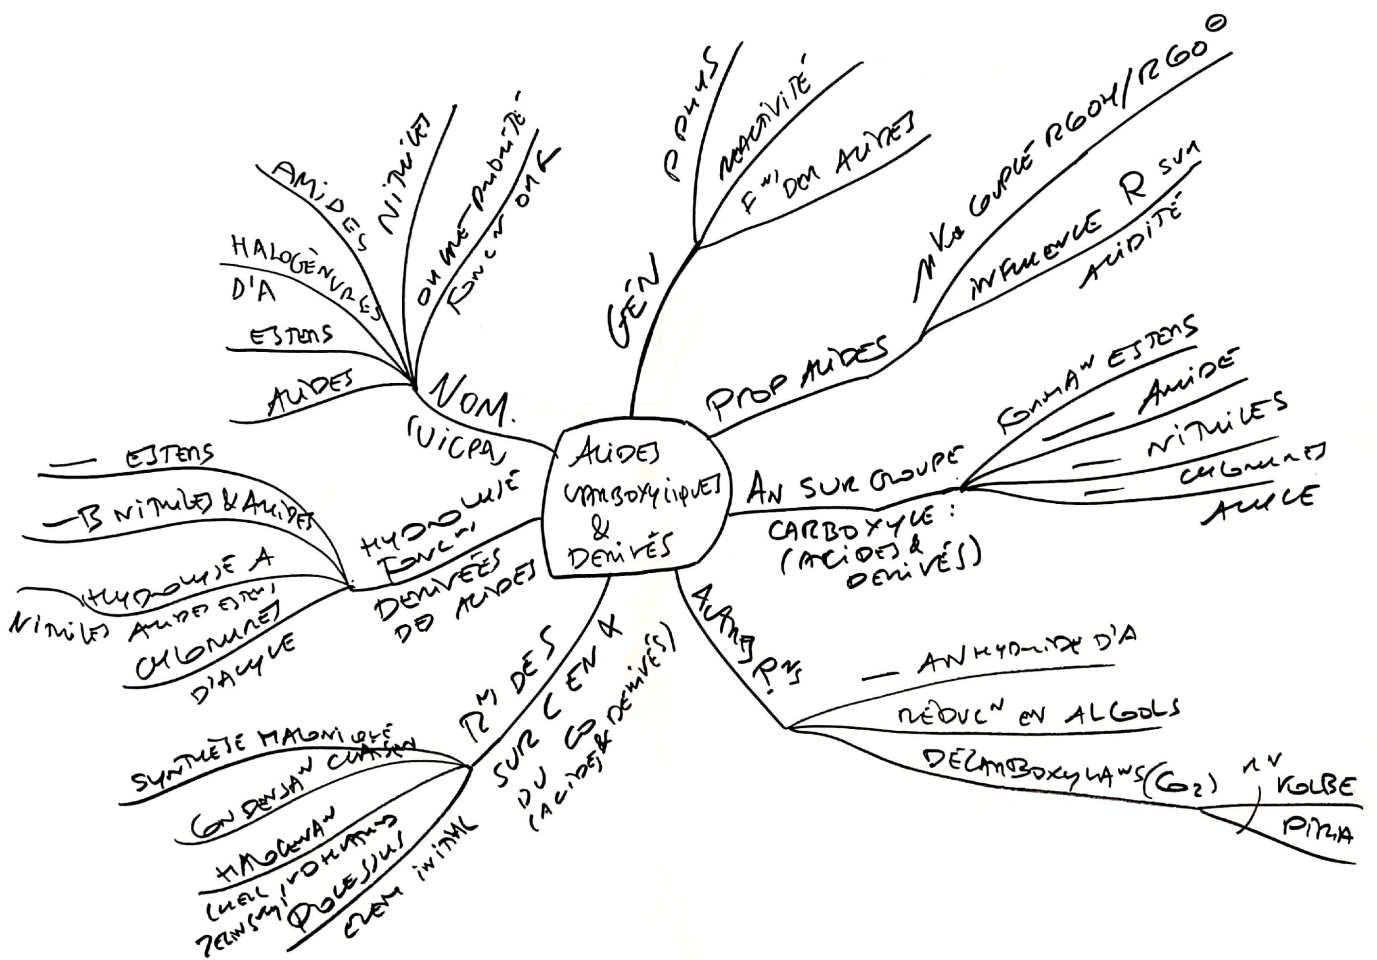 ACIDES
CARBOXYLIQUES
&
DERIVÉS
GÉN
P PHYS
RÉACTIVITÉ
DES ACIDES
PROP ACIDES
COUPLE RCOOH/RCOO⊖
INFLUENCE R SUR
ACIDITÉ
AN SUR GROUPE
CARBOXYLE :
(ACIDES &
DERIVÉS)
FORMAN ESTERS
— AMIDE
— NITRILES
— CHLORURES
ACYLE
AUTRES Rns
— ANHYDRIDE D'A
RÉDUCn EN ALCOOLS
DÉCARBOXYLAns (CO2)
rn
KOLBE
PIRIA
Rn DES
SUR C EN α
DU CO
(ACIDES & DERIVÉS)
SYNTHÈSE MALONIQUE
CONDENSAn CLAISEN
HALOGÉNAn
PROCESSUS
INITIAL
HYDROLYSE
FONCn
DERIVÉES
DES ACIDES
— ESTERS
—B NITRILES & AMIDES
HYDROLYSE A
NITRILES AMIDES ESTERS
CHLORURES
D'ACYLE
NOM.
(UICPA)
ACIDES
ESTERS
HALOGÉNURES
D'A
AMIDES
NITRILES
ORDRE PRIORITÉ
FONCn